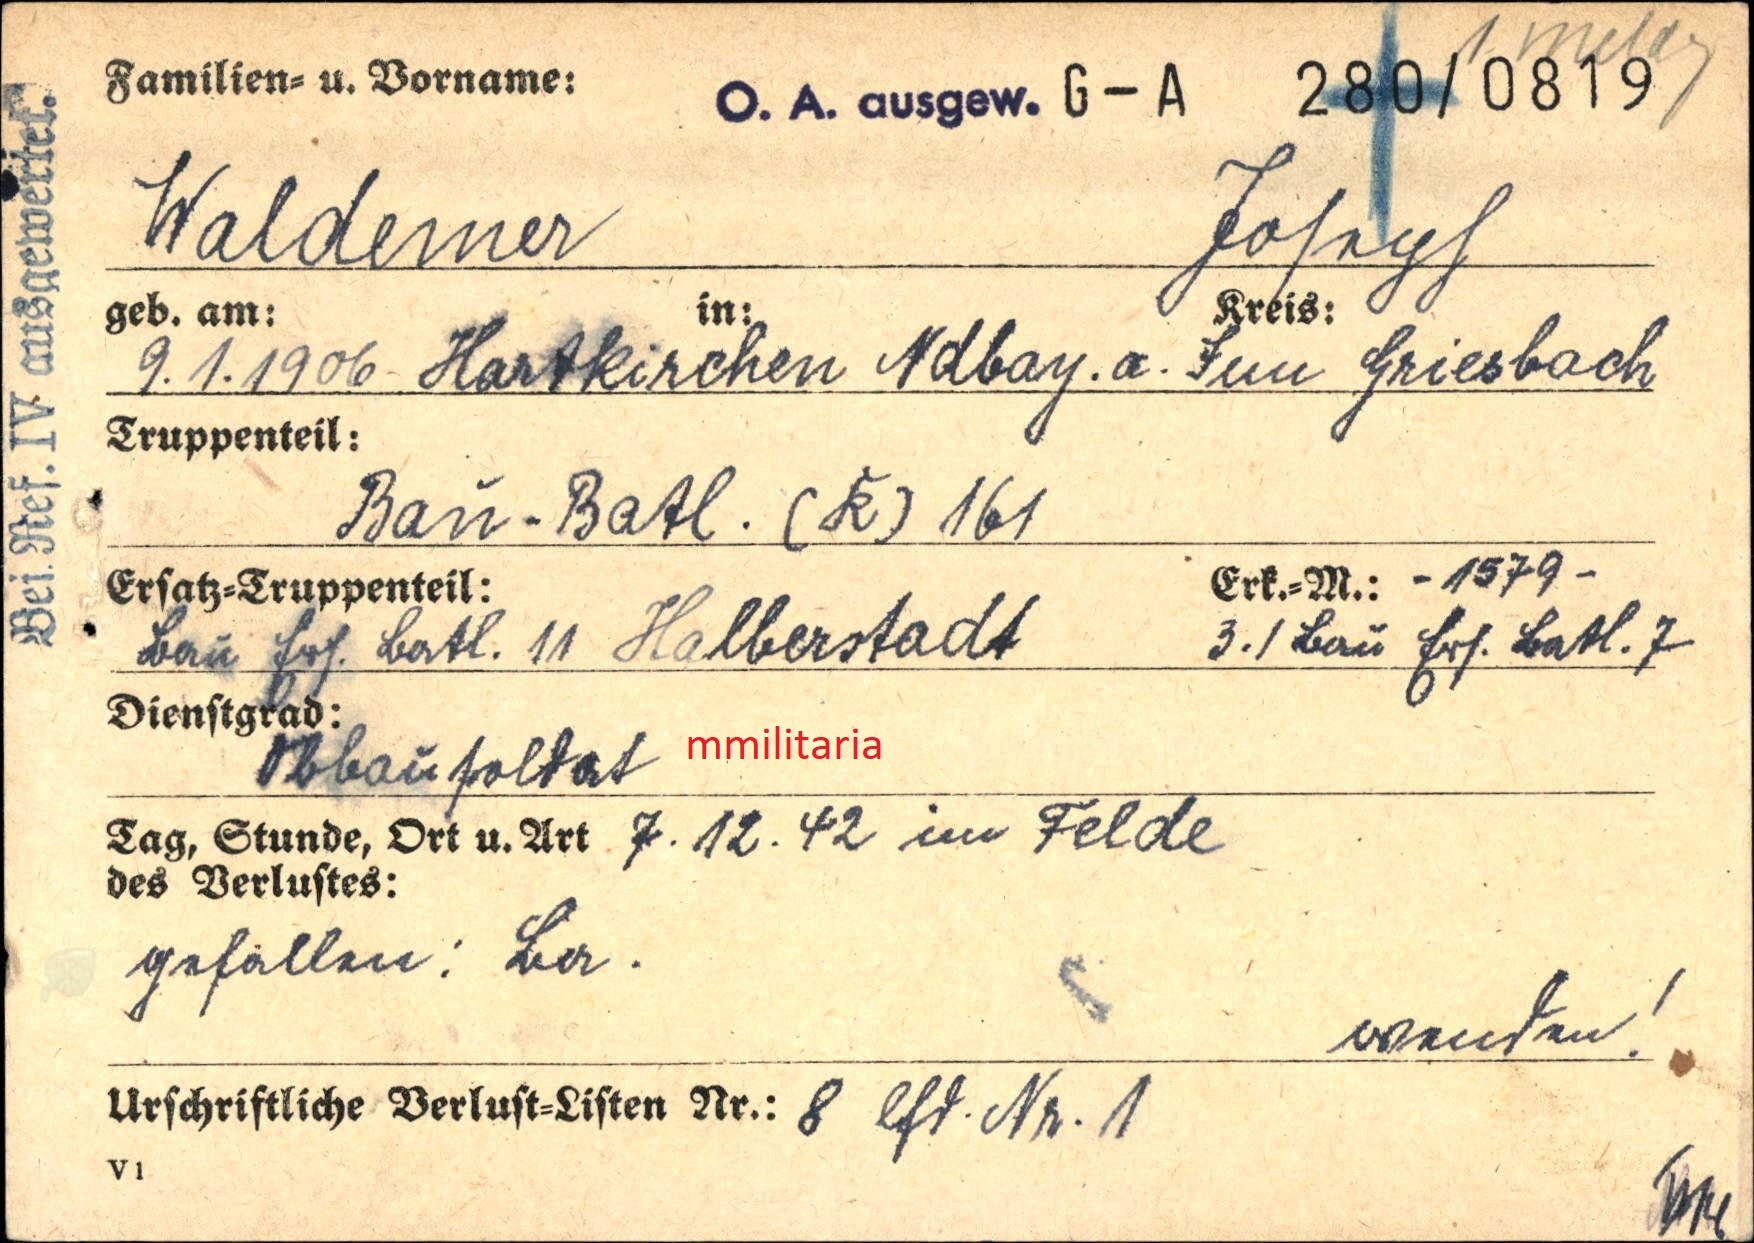 1. Meldg
Familien- u. Vorname: O. A. ausgew. G-A 280/0819
Waldemer Joseph
geb. am: in: Kreis:
9.1.1906 Hartkirchen Ndbay. a. Inn Griesbach
Truppenteil:
Bau-Batl. (K) 161
Ersatz-Truppenteil: Erk.-M.: -1579-
Bau Ers. Batl. 11 Halberstadt 3./Bau Ers. Batl. 7
Dienstgrad:
Obbausoldat
mmilitaria
Tag, Stunde, Ort u. Art 7.12.42 im Felde
des Verlustes:
gefallen:
wenden!
Urschriftliche Verlust-Listen Nr.: 8 lfd. Nr. 1
V1
Bei Ref. IV ausgewertet.